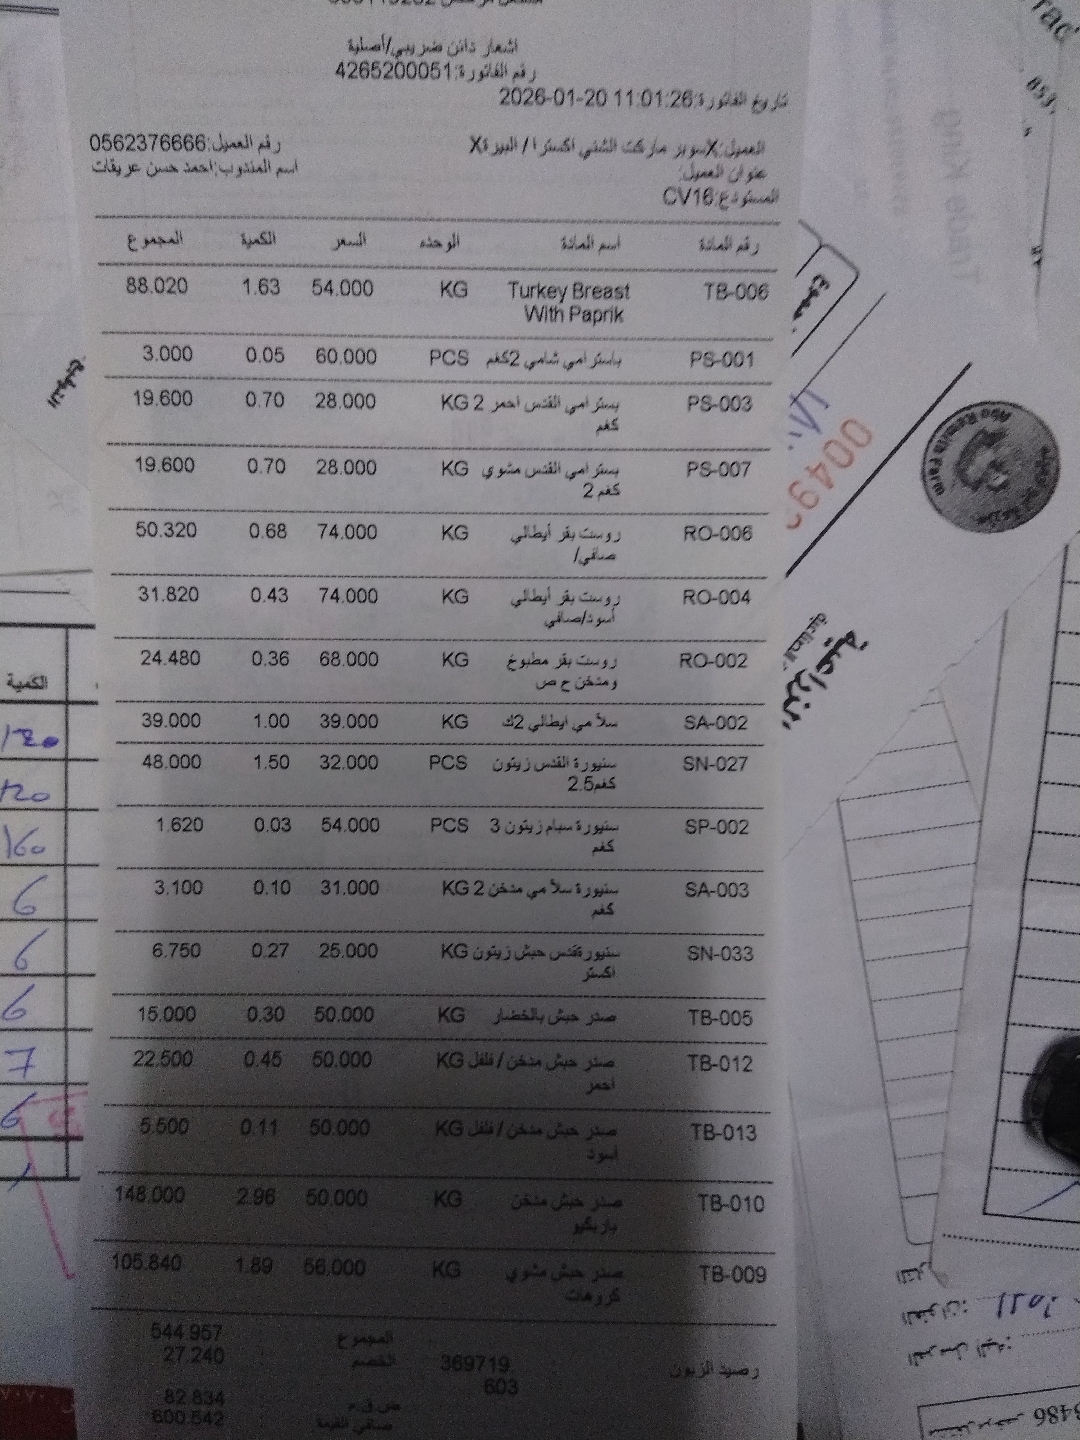 اشعار دائن ضريبي/أصلية
رقم الفاتورة:4265200051
تاريخ الفاتورة:2026-01-20 11:01:26
العميل:Xسوبر ماركت الشني اكسترا / البيرةX
رقم العميل:0562376666
عنوان العميل:
اسم المندوب:احمد حسن عريقات
المستودع:CV16
رقم المادة اسم المادة الوحده السعر الكمية المجموع
TB-006 Turkey Breast KG 54.000 1.63 88.020
With Paprik
PS-001 باسترامي شامي 2كغم PCS 60.000 0.05 3.000
PS-003 بسترامي القدس احمر 2 KG 28.000 0.70 19.600
كغم
PS-007 بسترامي القدس مشوي KG 28.000 0.70 19.600
2 كغم
RO-006 روست بقر أيطالي KG 74.000 0.68 50.320
صافي/
RO-004 روست بقر أيطالي KG 74.000 0.43 31.820
أسود/صافي
RO-002 روست بقر مطبوخ KG 68.000 0.36 24.480
ومدخن ح ص
SA-002 سلامي ايطالي 2ك KG 39.000 1.00 39.000
SN-027 سنيورة القدس زيتون PCS 32.000 1.50 48.000
2.5كغم
SP-002 سنيورة سبام زيتون 3 PCS 54.000 0.03 1.620
كغم
SA-003 سنيورة سلامي مدخن 2 KG 31.000 0.10 3.100
كغم
SN-033 سنيورةقدس حبش زيتون KG 25.000 0.27 6.750
اكستر
TB-005 صدر حبش بالخضار KG 50.000 0.30 15.000
TB-012 صدر حبش مدخن / فلفل KG 50.000 0.45 22.500
أحمر
TB-013 صدر حبش مدخن / فلفل KG 50.000 0.11 5.500
أسود
TB-010 صدر حبش مدخن KG 50.000 2.96 148.000
باربكيو
TB-009 صدر حبش مشوي KG 56.000 1.89 105.840
كروهات
المجموع 544.957
رصيد الزبون 369719.
603
الخصم 27.240
ض.ق.م 82.834
صافي القيمة 600.542
الكمية
120
120
160
6
6
6
7
6